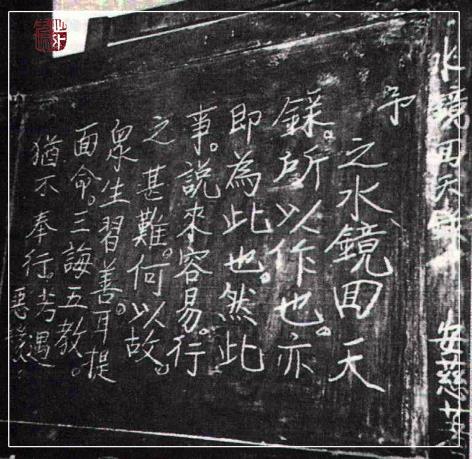 水鏡回天錄　安慈
予
之水鏡回天
錄。所以作也。亦
即為此也。然此
事。說來容易。行
之甚難。何以故。
眾生習善。耳提
面命。三誨五教。
猶不奉行。若遇
惡緣。